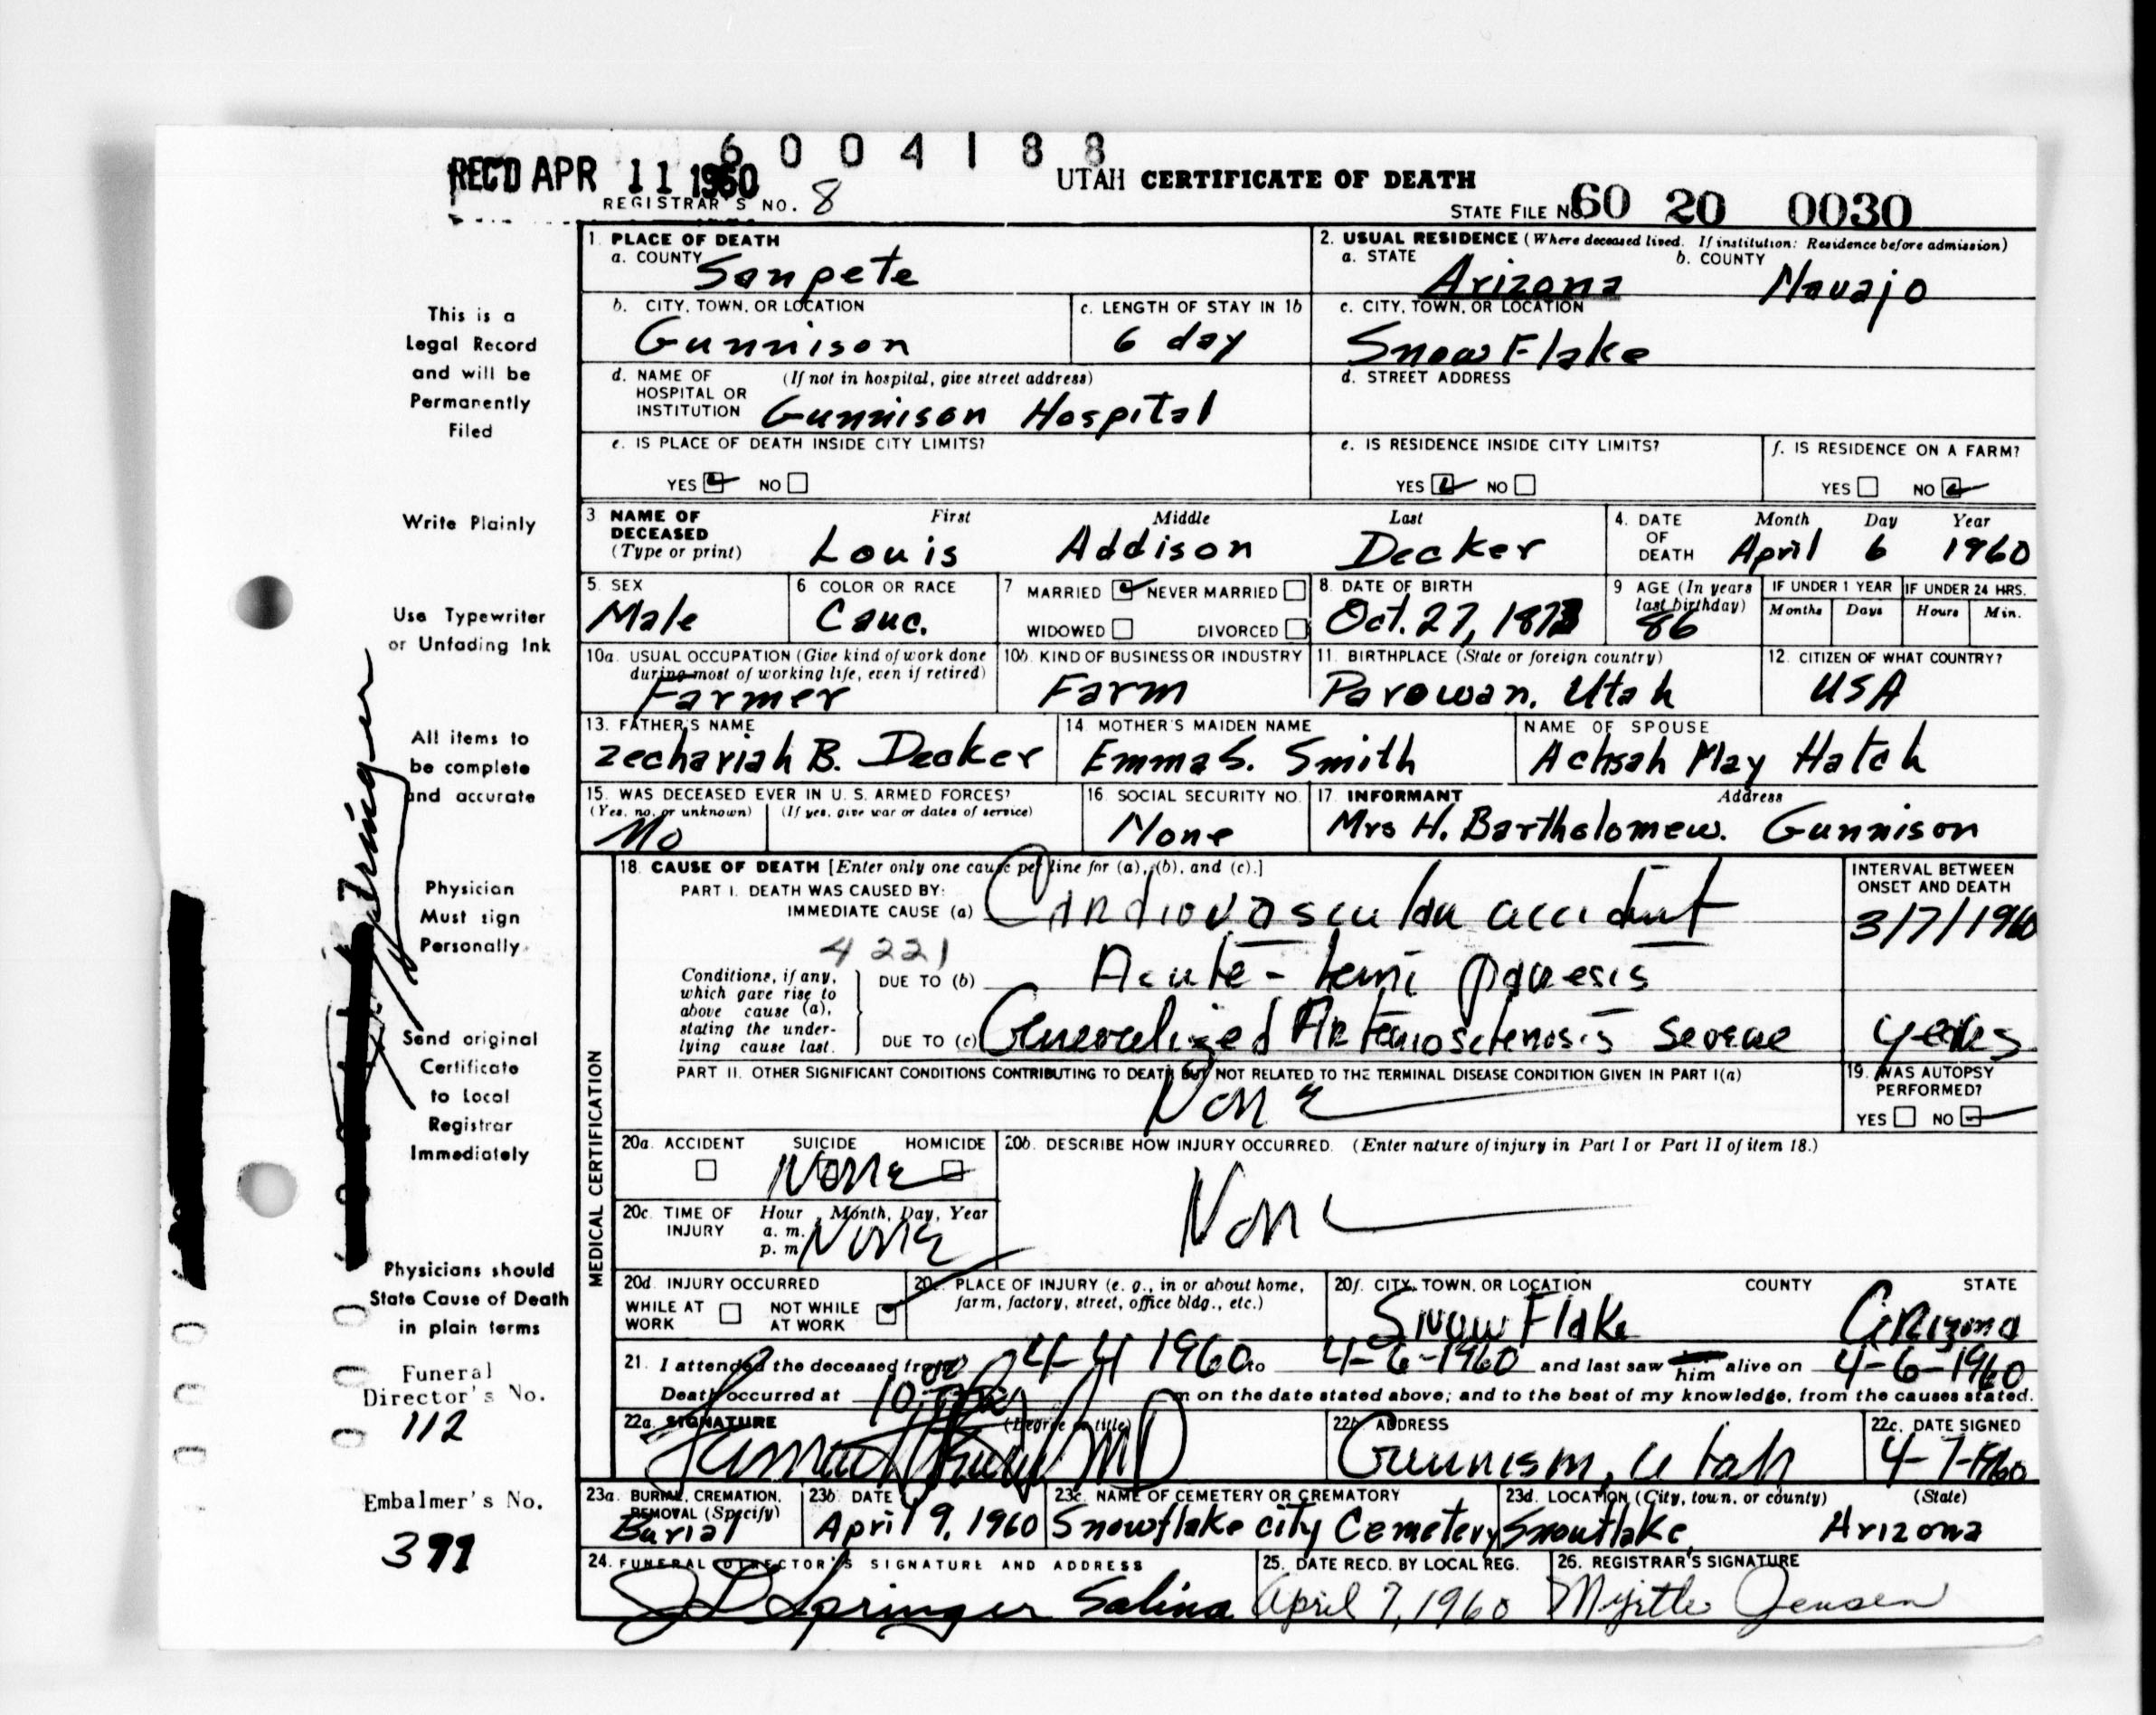 6004188
REC'D APR 11 1960
UTAH CERTIFICATE OF DEATH
REGISTRAR'S NO. 8
STATE FILE NO. 60 20 0030
1. PLACE OF DEATH
a. COUNTY Sanpete
2. USUAL RESIDENCE (Where deceased lived. If institution: Residence before admission)
a. STATE Arizona b. COUNTY Navajo
b. CITY, TOWN, OR LOCATION Gunnison
c. LENGTH OF STAY IN 1b 6 day
c. CITY, TOWN, OR LOCATION Snow Flake
d. NAME OF HOSPITAL OR INSTITUTION (If not in hospital, give street address) Gunnison Hospital
d. STREET ADDRESS
e. IS PLACE OF DEATH INSIDE CITY LIMITS?
YES NO
e. IS RESIDENCE INSIDE CITY LIMITS?
YES NO
f. IS RESIDENCE ON A FARM?
YES NO
3 NAME OF DECEASED (Type or print)
First Middle Last
Louis Addison Decker
4. DATE OF DEATH Month Day Year
April 6 1960
5. SEX Male
6 COLOR OR RACE Cauc.
7 MARRIED NEVER MARRIED
WIDOWED DIVORCED
8. DATE OF BIRTH Oct. 27, 1873
9 AGE (In years last birthday) 86
IF UNDER 1 YEAR Months Days
IF UNDER 24 HRS. Hours Min.
10a. USUAL OCCUPATION (Give kind of work done during most of working life, even if retired) Farmer
10b. KIND OF BUSINESS OR INDUSTRY Farm
11. BIRTHPLACE (State or foreign country) Parowan, Utah
12. CITIZEN OF WHAT COUNTRY? USA
13. FATHER'S NAME Zechariah B. Decker
14. MOTHER'S MAIDEN NAME Emma S. Smith
NAME OF SPOUSE Achsah May Hatch
15. WAS DECEASED EVER IN U. S. ARMED FORCES?
(Yes, no, or unknown) (If yes, give war or dates of service)
No
16. SOCIAL SECURITY NO. None
17. INFORMANT Address
Mrs H. Bartholomew. Gunnison
MEDICAL CERTIFICATION
18. CAUSE OF DEATH [Enter only one cause per line for (a), (b), and (c).]
PART I. DEATH WAS CAUSED BY:
IMMEDIATE CAUSE (a) Cardiovascular accident
INTERVAL BETWEEN ONSET AND DEATH
3/7/1960
4221
Conditions, if any, which gave rise to above cause (a), stating the underlying cause last.
DUE TO (b) Acute - hemi paresis
DUE TO (c) Generalized Arteriosclerosis severe
years
PART II. OTHER SIGNIFICANT CONDITIONS CONTRIBUTING TO DEATH BUT NOT RELATED TO THE TERMINAL DISEASE CONDITION GIVEN IN PART I(a)
None
19. WAS AUTOPSY PERFORMED?
YES NO
20a. ACCIDENT SUICIDE HOMICIDE
None
20b. DESCRIBE HOW INJURY OCCURRED. (Enter nature of injury in Part I or Part II of item 18.)
None
20c. TIME OF INJURY Hour Month, Day, Year
a. m.
p. m. None
20d. INJURY OCCURRED
WHILE AT WORK NOT WHILE AT WORK
20e. PLACE OF INJURY (e. g., in or about home, farm, factory, street, office bldg., etc.)
20f. CITY, TOWN, OR LOCATION COUNTY STATE
Snow Flake Arizona
21. I attended the deceased from 4-4 1960 to 4-6-1960 and last saw him alive on 4-6-1960
Death occurred at 10 m on the date stated above; and to the best of my knowledge, from the causes stated.
22a. SIGNATURE (Degree or title)
MD
22b. ADDRESS Gunnison, Utah
22c. DATE SIGNED 4-7-1960
23a. BURIAL, CREMATION, REMOVAL (Specify) Burial
23b. DATE April 9, 1960
23c. NAME OF CEMETERY OR CREMATORY Snowflake city Cemetery
23d. LOCATION (City, town, or county) (State)
Snowflake, Arizona
24. FUNERAL DIRECTOR'S SIGNATURE AND ADDRESS
Springer Salina
25. DATE RECD. BY LOCAL REG. April 7, 1960
26. REGISTRAR'S SIGNATURE Myrtle Jensen
This is a
Legal Record
and will be
Permanently
Filed
Write Plainly
Use Typewriter
or Unfading Ink
All items to
be complete
and accurate
Physician
Must sign
Personally
Send original
Certificate
to Local
Registrar
Immediately
Physicians should
State Cause of Death
in plain terms
Funeral
Director's No.
112
Embalmer's No.
Springer